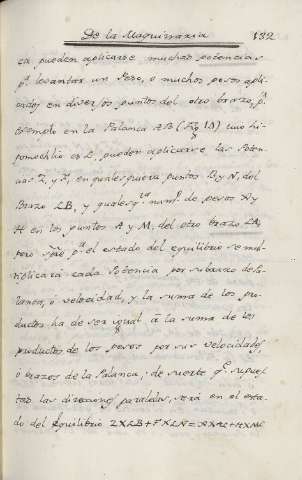 De la Maquinaria 132
ca pueden aplicarse muchas potencias
pª levantar un Peso, o muchos pesos apli-
cados en diversos puntos del otro brazo, pr.
exemplo en la Palanca AB (Fig 18) cuio hi-
pomoclio es L pueden aplicarse las Poten-
cias Z, y F, en qualesquiera puntos B y N, del
Brazo LB, y qualesqra. numº. de pesos X y
H en los puntos A y M, del otro brazo LA,
pero pª el estado del equilibrio se mul-
tiplicará cada Potencia por su brazo de Pa-
lanca, o velocidad, y la suma de los pro-
ductos ha de ser igual á la suma de los
productos de los pesos por sus velocidades,
o brazos de la Palanca; de suerte qe. supues-
tas las direcciones paralelas, será en el esta-
do del Equilibrio ZXLB+FXLN=